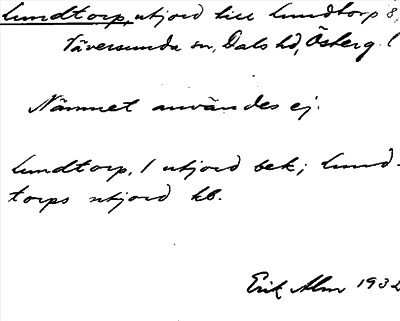 Lundtorp, utjord till Lundtorp 8,
Väversunda sn, Dals hd, Österg. l
Namnet användes ej.
Lundtorp, 1 utjord bek; Lund-
torps utjord kb.
Erik Alm 1932